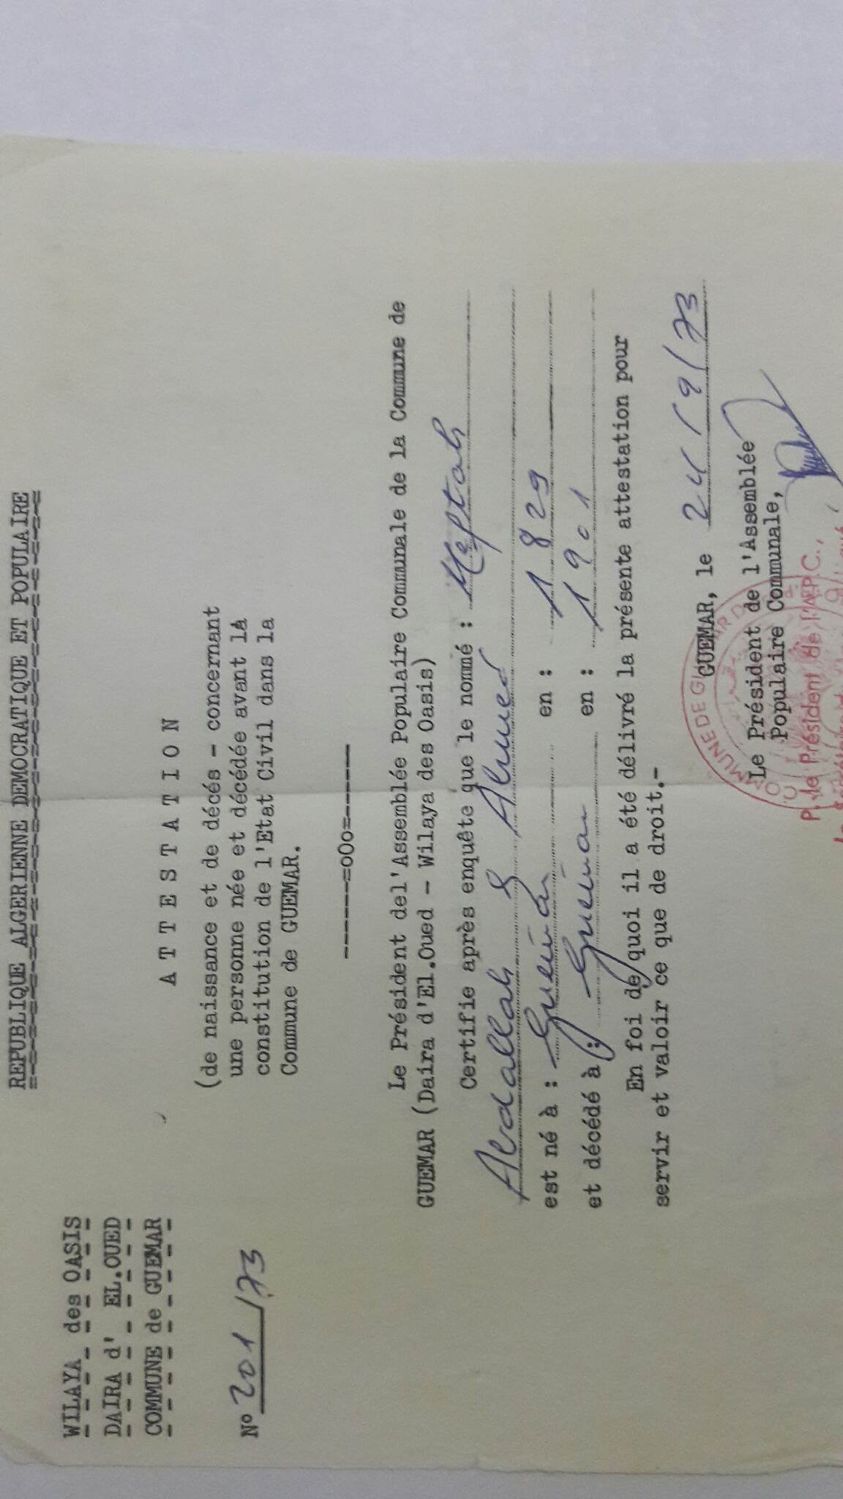 REPUBLIQUE ALGERIENNE DEMOCRATIQUE ET POPULAIRE
WILAYA des OASIS
DAIRA d' EL.OUED
COMMUNE de GUEMAR
A T T E S T A T I O N
N° 201/73
(de naissance et de décés - concernant
une personne née et décédée avant la
constitution de l'Etat Civil dans la
Commune de GUEMAR.
------=oOo=------
Le Président del'Assemblée Populaire Communale de la Commune de
GUEMAR (Daira d'El.Oued - Wilaya des Oasis)
Certifie après enquête que le nommé : Meftah
Abdallah B Ahmed
est né à : Guemar en : 1829
et décédé à : Guemar en : 1901
En foi de quoi il a été délivré la présente attestation pour
servir et valoir ce que de droit.-
GUEMAR, le 24/9/73
Le Président de l'Assemblée
Populaire Communale,
COMMUNE DE GU
P. le Président de l'A.P.C.,